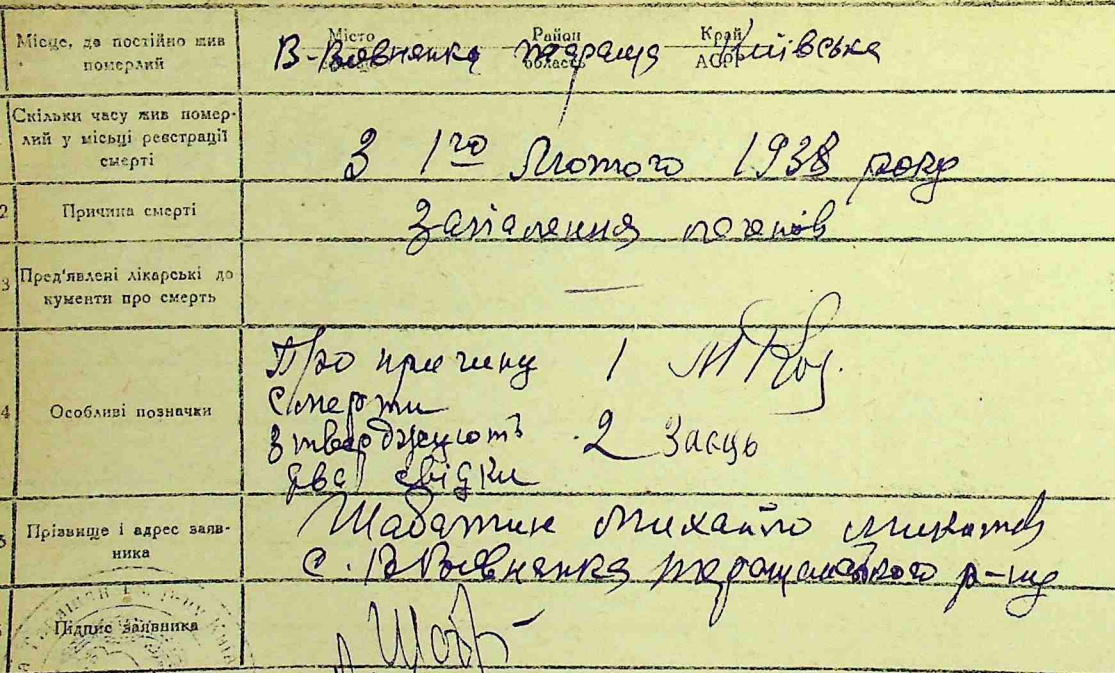 Місце, де постійно жив
померлий
Місто
Район
область
Край
АСРР
В-Вовнянка Тараща Київська
Скільки часу жив помер-
лий у місьці реєстрації
смерті
З 1го Лютого 1938 року
2 Причина смерті
Запалення легенів
3 Пред'явлені лікарські до
кументи про смерть
—
4 Особливі позначки
Про причину 1
Смерти
Зтверджують 2 Заєць
два свідки
Прізвище і адрес заяв-
ника
Михайло
с. В Вовнянка Таращанського р-ну
Підпис заявника